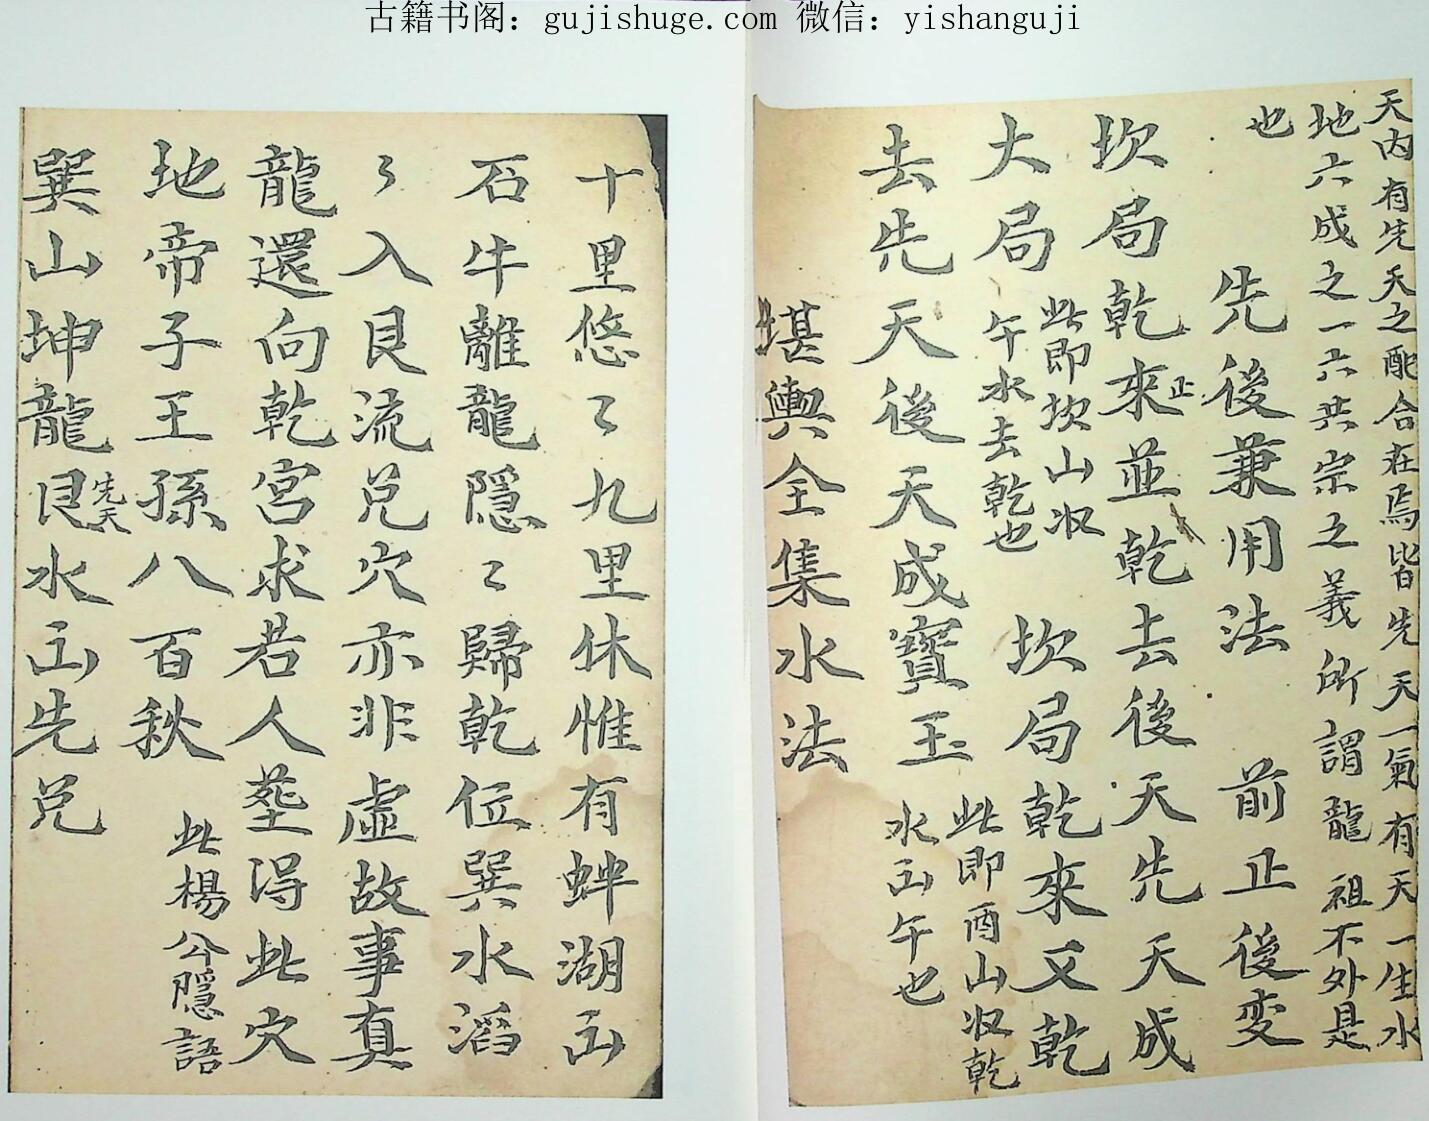 古籍书阁：gujishuge.com 微信：yishanguji
天内有先天之配合在焉皆先天一氣有天一生水
地六成之一六共宗之義所謂龍祖不外是
也
先後兼用法　前正後変
坎局乾來正並乾去後天先天成
大局此即坎山収午水去乾也　坎局乾來又乾
去先天後天成寶玉此即酉山収乾水出午也
堪輿全集水法
十里悠〻九里休惟有蚌湖出
石牛離龍隱〻歸乾位巽水滔
〻入艮流兌穴亦非虛故事真
龍還向乾宮求若人塟得此穴
地帝子王孫八百秋　此楊公隱語
巽山坤龍艮先天水出先兌